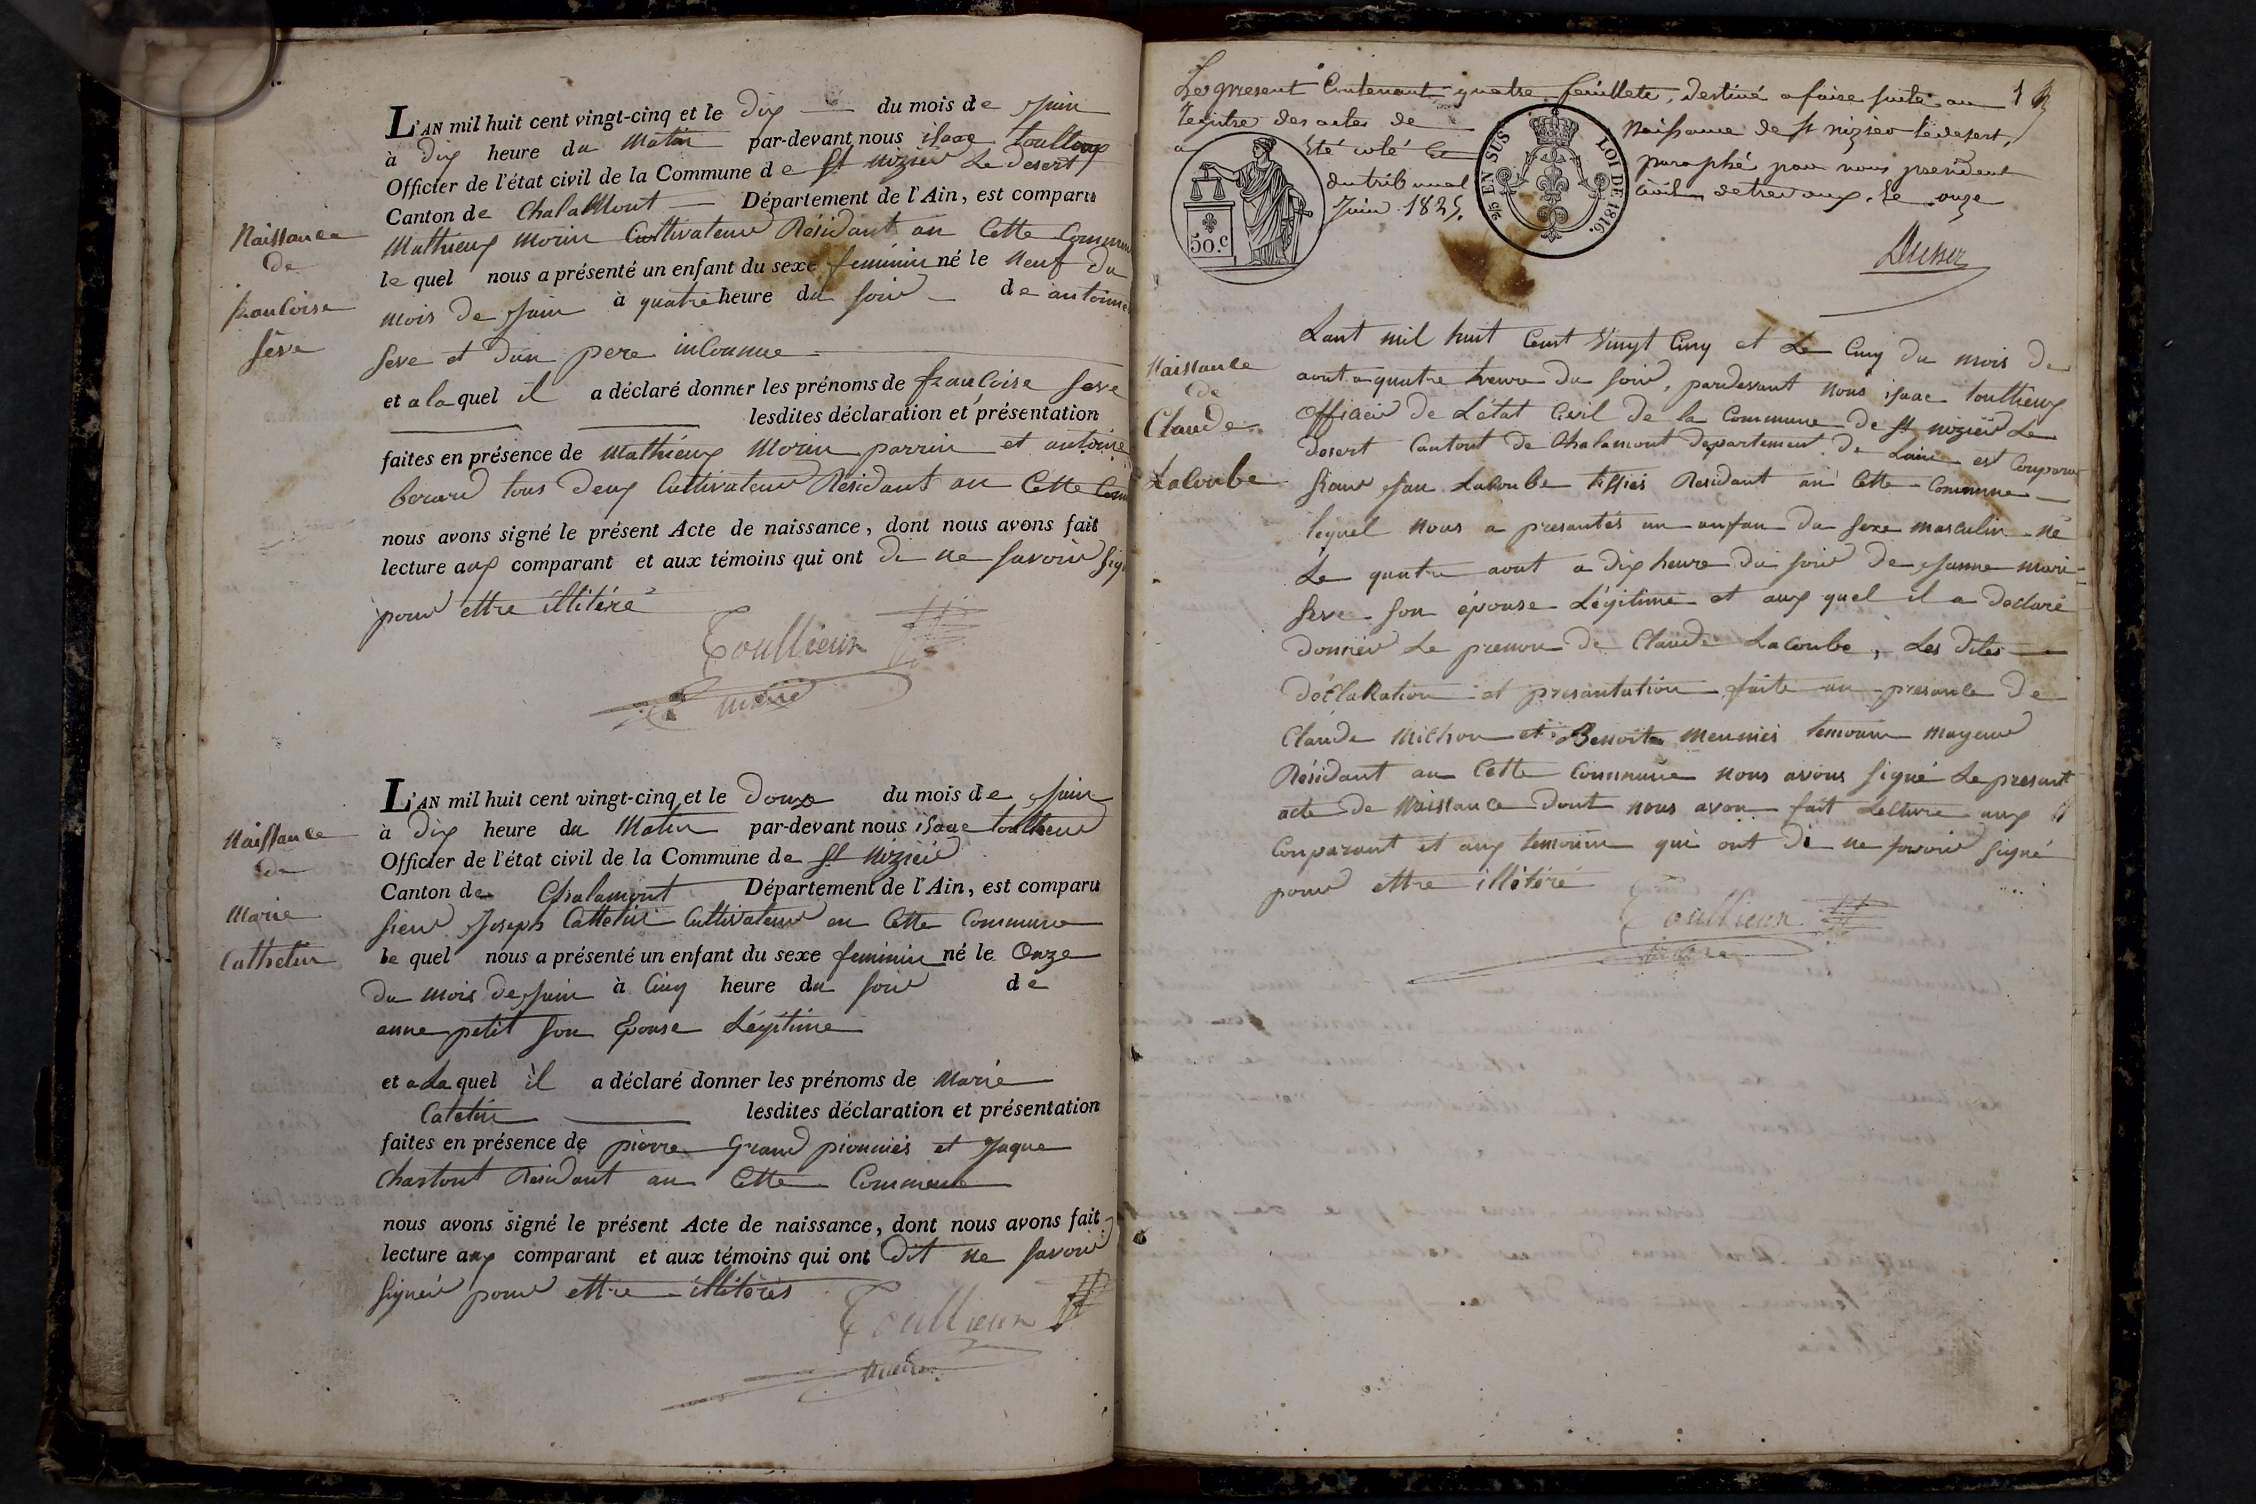 L'AN mil huit cent vingt-cinq et le dix du mois de juin
à dix heure du matin par-devant nous isaac toullieux
Officier de l'état civil de la Commune de St nizier Le desert
Canton de ChalaMont Département de l'Ain, est comparu
Mathieux Morin Cultivateur Résidant an Cette Commune
le quel nous a présenté un enfant du sexe feminin né le neuf du
mois de juin à quatre heure du soir de antoinne
Seve et dun pere inConnue
et a la quel il a déclaré donner les prénoms de franCoise seve
lesdites déclaration et présentation
faites en présence de Mathieux Morin parrin et antoine
berard tous deux Cultivateur Résidant an Cette Com
nous avons signé le présent Acte de naissance, dont nous avons fait
lecture aux comparant et aux témoins qui ont di ne savoir sig
pour ettre illitéré
Toullieux
maire
Naissance
de
franCoise
Seve
L'AN mil huit cent vingt-cinq et le douze du mois de juin
à dix heure du Matin par-devant nous isaac toullieux
Officier de l'état civil de la Commune de St Nizier
Canton de Chalamont Département de l'Ain, est comparu
sieur Joseph Cattelin Cultivateur en Cette Commune
le quel nous a présenté un enfant du sexe feminin né le Onze
du mois de juin à Cinq heure du soir de
anne petit son Epouse Légitime
et a La quel il a déclaré donner les prénoms de Marie
Catelin lesdites déclaration et présentation
faites en présence de pierre Grand pionnies et Jaque
Chartout Residant an Cette Commune
nous avons signé le présent Acte de naissance, dont nous avons fait
lecture aux comparant et aux témoins qui ont dit ne savoir
signér pour ettre illitérés
Toullieux
maire
Naissance
de
Marie
Cathelin
Le present Contenant quatre feuillets, destiné a faire suite au 1
Registre des actes de Naissance de St nizier le desert,
a été coté et paraphé par nous president
du tribunal civil de trevoux. le onze
Juin 1825.
50.c
25 EN SUS
LOI DE 1816.
Naissance
de
Claude
LaCombe
Lant mil huit Cent Vingt Cinq et Le Cinq du mois de
aout a quatre heure du soir, pardevant nous isaac toullieux
Officier de Létat Civil de la Commune de St nizier Le
desert Cantont de Chalamont departement de Lain est Comparu
sieur Jean LaCombe tissies Residant an Cette Commune
lequel nous a presantés un anfan du sexe masculin né
Le quatre aout a dix heure du soir de Janne marie
seve son épouse Légitime et aux quel il a declaré
donnér Le prenon de Claude LaCombe, Les dites
déClaRation et presantation faite an presance de
Claude Michon et Benoite Meunies temoins mayeur
Résidant an Cette Commune nous avons signé Le presant
acte de Naissance dont nous avon fait Lecture aux
Conparant et aux temoins qui ont di ne savoir signé
pour ettre illétéré
Toullieux
maire